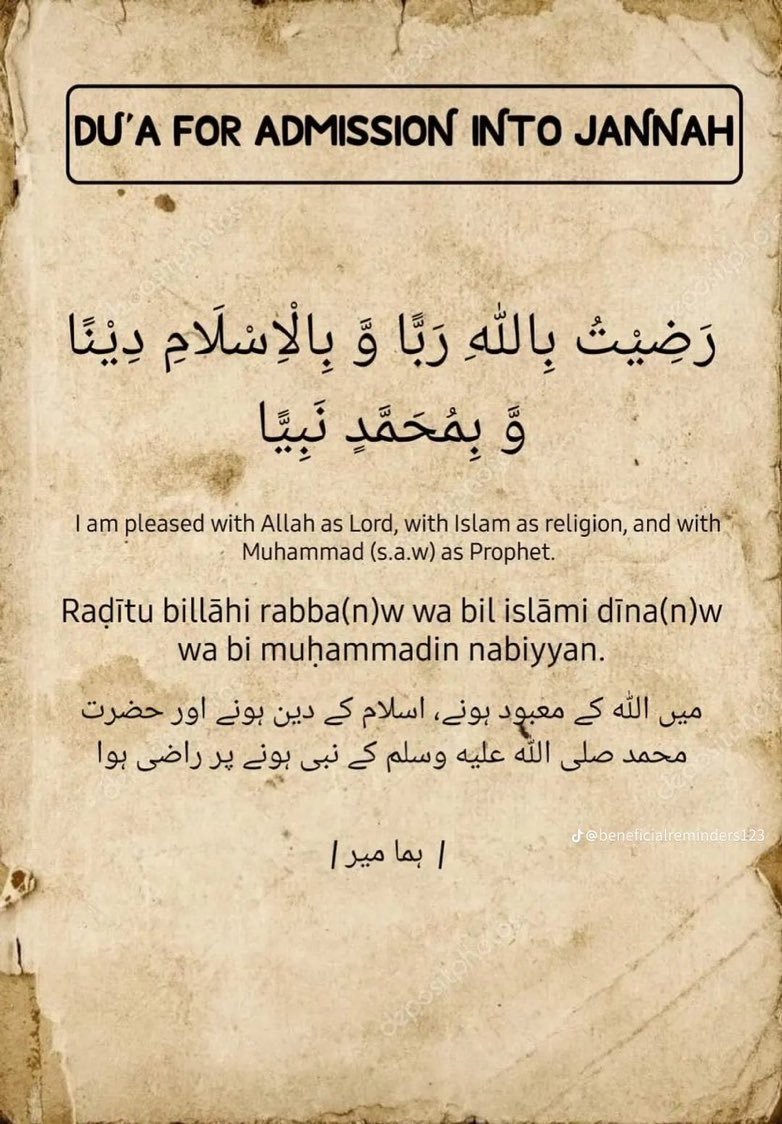 DU'A FOR ADMISSION INTO JANNAH
رَضِيْتُ بِاللّٰهِ رَبًّا وَّ بِالْاِسْلَامِ دِيْنًا
وَّ بِمُحَمَّدٍ نَبِيًّا
I am pleased with Allah as Lord, with Islam as religion, and with
Muhammad (s.a.w) as Prophet.
Raḍītu billāhi rabba(n)w wa bil islāmi dīna(n)w
wa bi muḥammadin nabiyyan.
میں اللّٰه کے معبود ہونے، اسلام کے دین ہونے اور حضرت
محمد صلی اللّٰه علیه وسلم کے نبی ہونے پر راضی ہوا
@beneficialreminders123
| ہما میر |